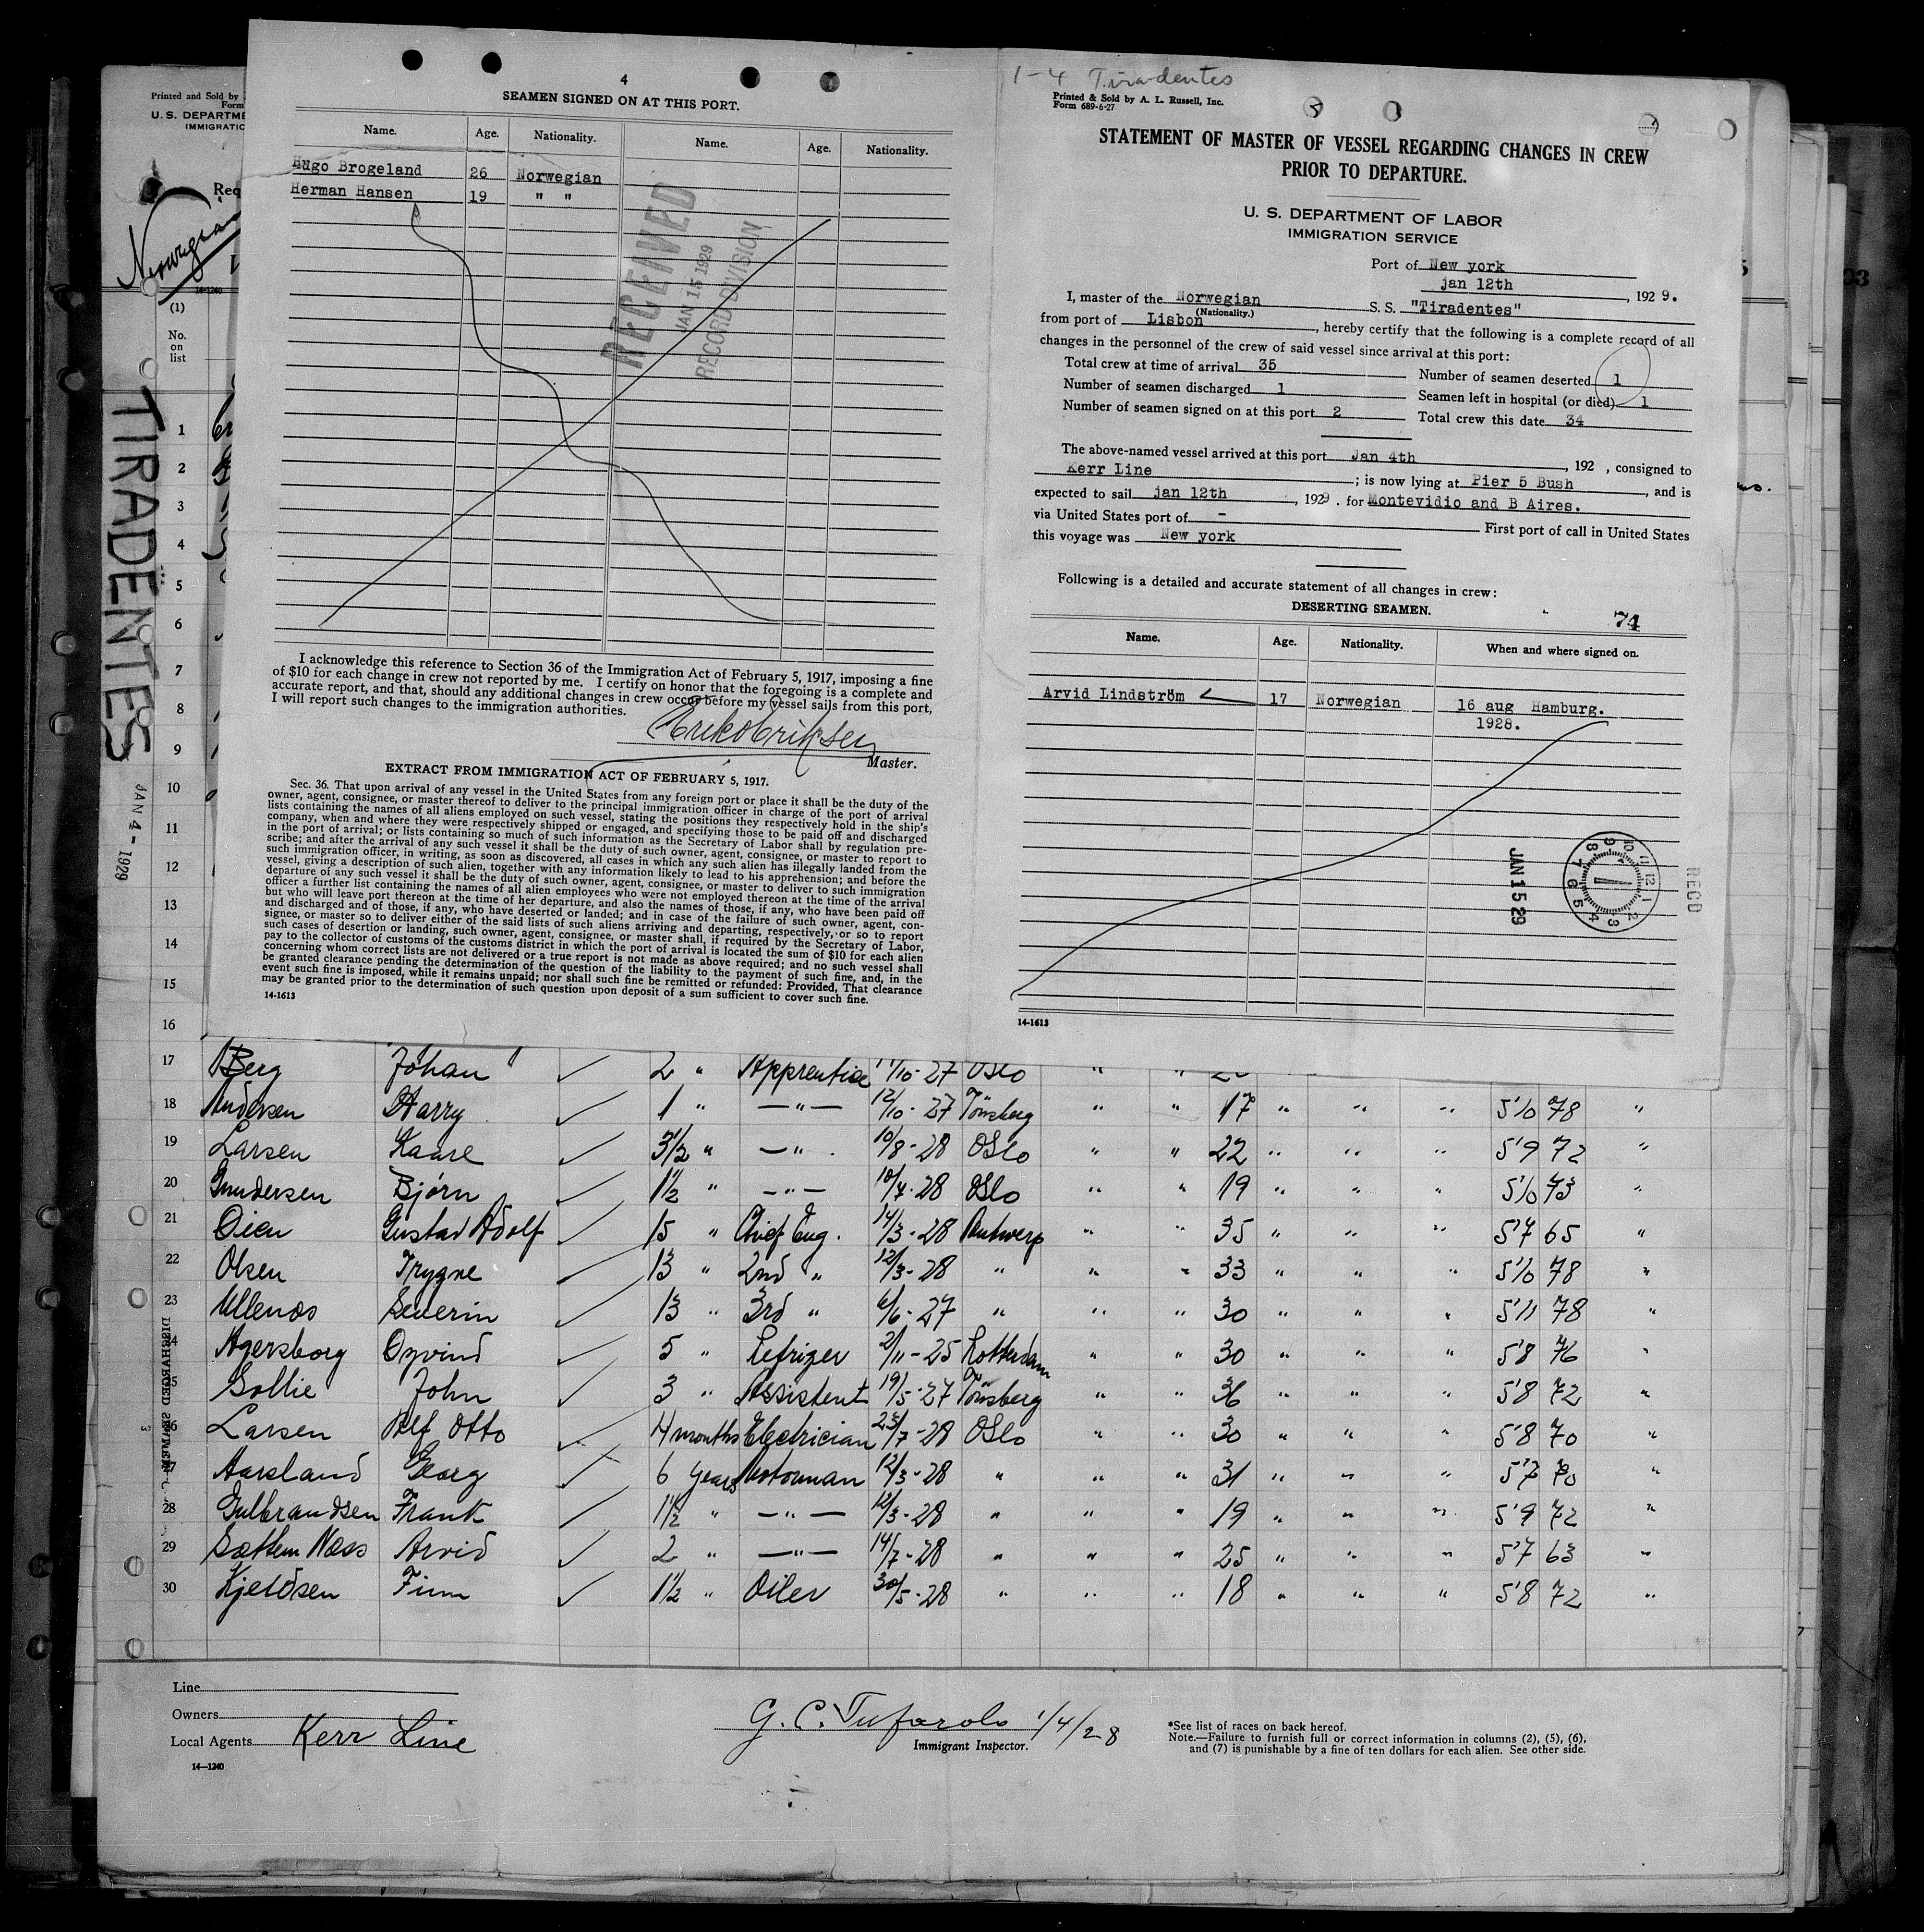 4
SEAMEN SIGNED ON AT THIS PORT.
Name. Age. Nationality. Name. Age. Nationality.
Hugo Brogeland 26 Norwegian
Herman Hansen 19 " "
RECEIVED
JAN 15 1929
RECORD DIVISION
I acknowledge this reference to Section 36 of the Immigration Act of February 5, 1917, imposing a fine
of $10 for each change in crew not reported by me. I certify on honor that the foregoing is a complete and
accurate report, and that, should any additional changes in crew occur before my vessel sails from this port,
I will report such changes to the immigration authorities.
Master.
EXTRACT FROM IMMIGRATION ACT OF FEBRUARY 5, 1917.
Sec. 36. That upon arrival of any vessel in the United States from any foreign port or place it shall be the duty of the
owner, agent, consignee, or master thereof to deliver to the principal immigration officer in charge of the port of arrival
lists containing the names of all aliens employed on such vessel, stating the positions they respectively hold in the ship's
company, when and where they were respectively shipped or engaged, and specifying those to be paid off and discharged
in the port of arrival; or lists containing so much of such information as the Secretary of Labor shall by regulation pre-
scribe; and after the arrival of any such vessel it shall be the duty of such owner, agent, consignee, or master to report to
such immigration officer, in writing, as soon as discovered, all cases in which any such alien has illegally landed from the
vessel, giving a description of such alien, together with any information likely to lead to his apprehension; and before the
departure of any such vessel it shall be the duty of such owner, agent, consignee, or master to deliver to such immigration
officer a further list containing the names of all alien employees who were not employed thereon at the time of the arrival
but who will leave port thereon at the time of her departure, and also the names of those, if any, who have been paid off
and discharged and of those, if any, who have deserted or landed; and in case of the failure of such owner, agent, con-
signee, or master so to deliver either of the said lists of such aliens arriving and departing, respectively, or so to report
such cases of desertion or landing, such owner, agent, consignee, or master shall, if required by the Secretary of Labor,
pay to the collector of customs of the customs district in which the port of arrival is located the sum of $10 for each alien
concerning whom correct lists are not delivered or a true report is not made as above required; and no such vessel shall
be granted clearance pending the determination of the question of the liability to the payment of such fine, and, in the
event such fine is imposed, while it remains unpaid; nor shall such fine be remitted or refunded: Provided, That clearance
may be granted prior to the determination of such question upon deposit of a sum sufficient to cover such fine.
14-1613
1-4 Tiradentes
Printed & Sold by A. L. Russell, Inc.
Form 689-6-27
STATEMENT OF MASTER OF VESSEL REGARDING CHANGES IN CREW
PRIOR TO DEPARTURE.
U. S. DEPARTMENT OF LABOR
IMMIGRATION SERVICE
Port of New york
jan 12th, 1929.
I, master of the Norwegian S. S. "Tiradentes"
(Nationality.)
from port of Lisbon, hereby certify that the following is a complete record of all
changes in the personnel of the crew of said vessel since arrival at this port:
Total crew at time of arrival 35 Number of seamen deserted 1
Number of seamen discharged 1 Seamen left in hospital (or died) 1
Number of seamen signed on at this port 2 Total crew this date 34
The above-named vessel arrived at this port Jan 4th, 192 , consigned to
Kerr Line; is now lying at Pier 5 Bush, and is
expected to sail jan 12th, 1929. for Montevidio and B Aires.
via United States port of - First port of call in United States
this voyage was New york
Following is a detailed and accurate statement of all changes in crew:
DESERTING SEAMEN.
74
Name. Age. Nationality. When and where signed on.
Arvid Lindström 17 Norwegian 16 aug Hamburg.
1928.
JAN 15 29
RECD
14-1613
Printed and Sold by
Form
U. S. DEPARTME
IMMIGRATIO
Req
Norwegian
14-1240
(1)
No.
on
list
TIRADENTES
JAN 4 - 1929
1
2
3
4
5
6
7
8
9
10
11
12
13
14
15
16
17 Berg Johan 2 " Apprentice 11/10-27 Oslo " "
18 Andersen Harry 1 " —"— 12/10-27 Tönsberg " " 17 " " " 5'10 78 "
19 Larsen Kaare 3½ " —"— 10/8-28 Oslo " " 22 " " " 5'9 72 "
20 Gundersen Bjørn 1½ " —"— 10/4-28 Oslo " " 19 " " " 5'10 73 "
21 Oien Gustav Adolf 15 " Chief Eng. 14/3-28 Antwerp " " 35 " " " 5'7 65 "
22 Olsen Trygve 13 " 2nd " 12/3-28 " " " 33 " " " 5'10 78 "
23 Ullenæs Severin 13 " 3rd " 6/6-27 " " " 30 " " " 5'11 78 "
24 Agersborg Oyvind 5 " Refriger 2/11-25 Rotterdam " " 30 " " " 5'8 76 "
25 Sollie John 3 " Assistent 19/5-27 Tönsberg " " 36 " " " 5'8 72 "
26 Larsen Alf Otto 4 months Electrician 23/7-28 Oslo " " 30 " " " 5'8 70 "
27 Aarsland Georg 6 years Motorman 12/3-28 " " " 31 " " " 5'7 70 "
28 Gulbrandsen Frank 1½ " —"— 12/3-28 " " " 19 " " " 5'9 72 "
29 Sættem Næss Arvid 2 " —"— 14/7-28 " " " 25 " " " 5'7 63 "
30 Kjeldsen Finn 1½ " Oiler 30/5-28 " " " 18 " " " 5'8 72 "
Line
Owners
Local Agents Kerr Line
14—1240
G. C. Tufarolo 1/4/28
Immigrant Inspector.
*See list of races on back hereof.
Note.—Failure to furnish full or correct information in columns (2), (5), (6),
and (7) is punishable by a fine of ten dollars for each alien. See other side.